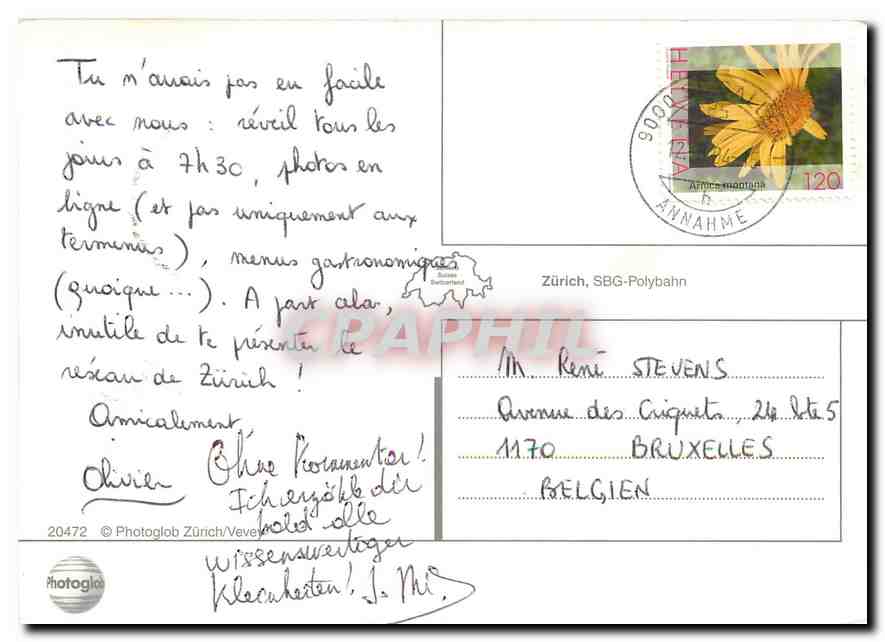 Tu n'aurais pas eu facile
avec nous : réveil tous les
jours à 7h30, photos en
ligne (et pas uniquement aux
terminus), menus gastronomiques
(quoique ...). A part cela,
inutile de te présenter le
réseau de Zürich !
Amicalement
Olivier
Ohne Kommentar!
Ich erzähle dir
bald alle
wissenswertiger
Kleinheiten!
20472 © Photoglob Zürich/Vevey
Photoglob
HELVETIA
Arnica montana
120
9000
ANNAHME
Suisse
Switzerland
Zürich, SBG-Polybahn
CPAPHIL
M. René STEVENS
Avenue des Criquets, 24 bte 5
1170 BRUXELLES
BELGIEN